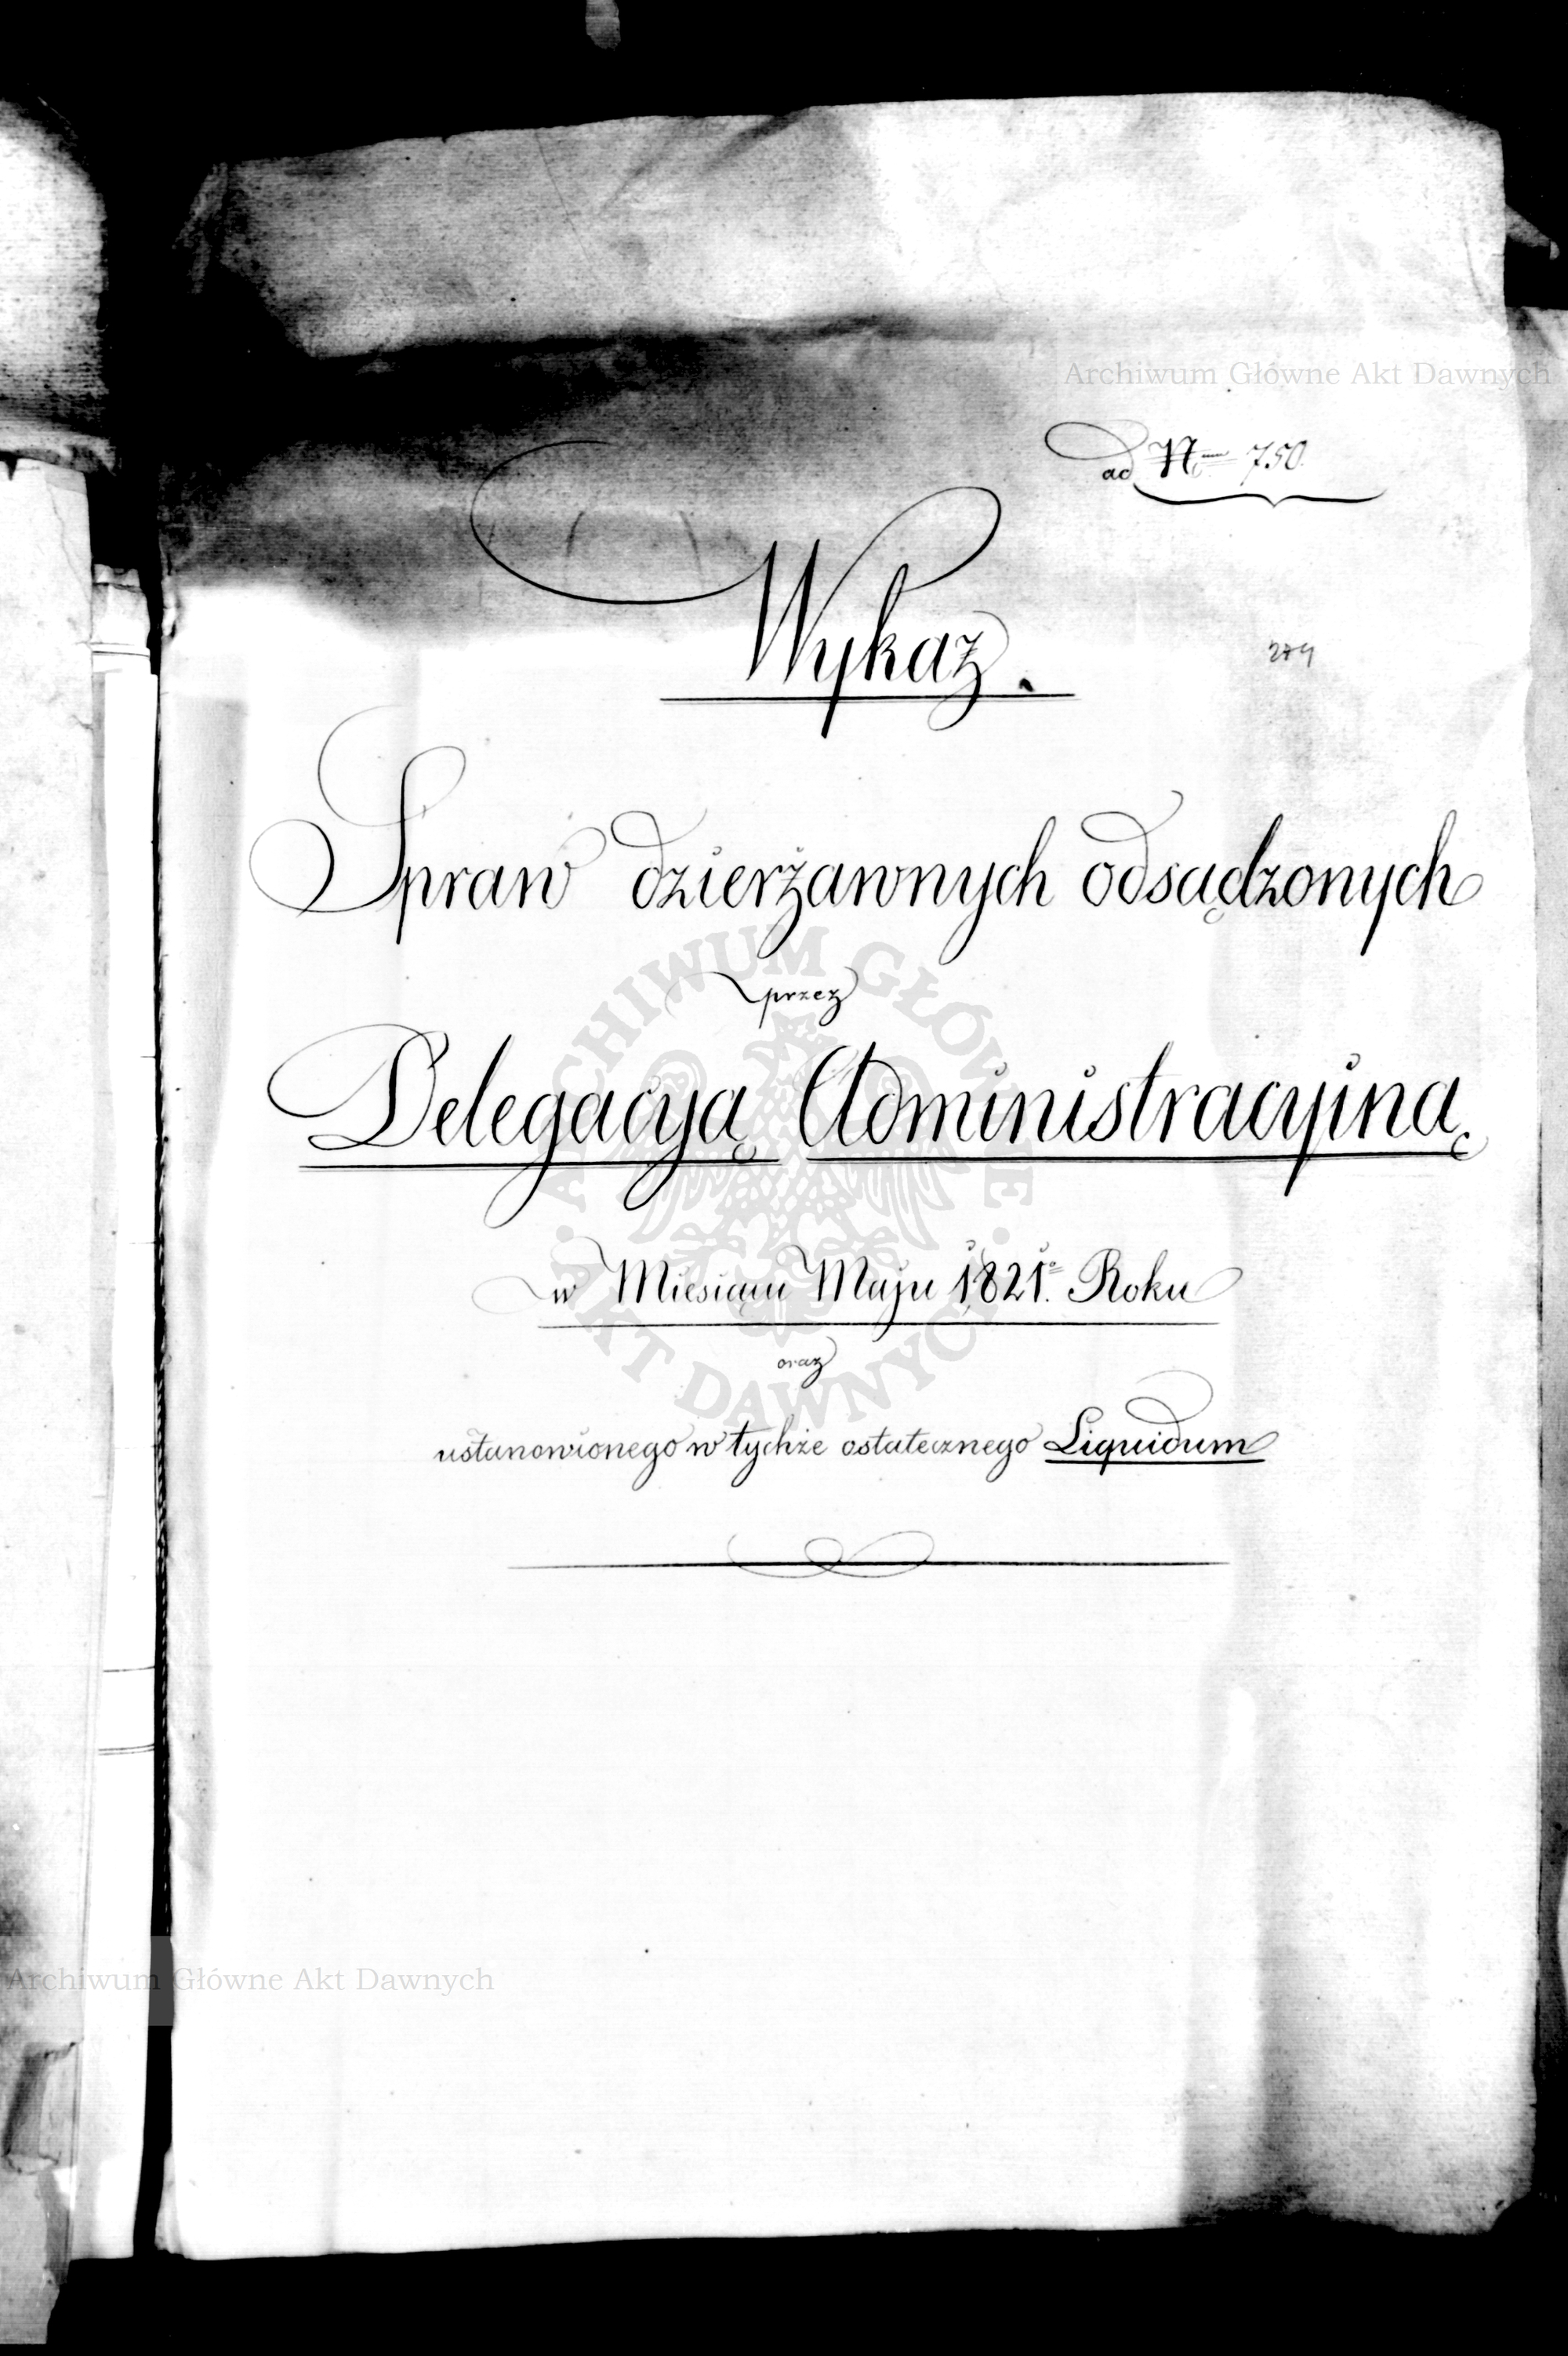 Archiwum Główne Akt Dawnych
ad N<sup>um</sup> 750.
Wykaz.
Spraw dzierżawnych odsądzonych
przez
Delegacyą Administracyiną
w Miesiącu Maju 1821<sup>o</sup>. Roku
oraz
ustanowionego w tychże ostatecznego Liquidum
ARCHIWUM GŁÓWNE · AKT DAWNYCH ·
Archiwum Główne Akt Dawnych